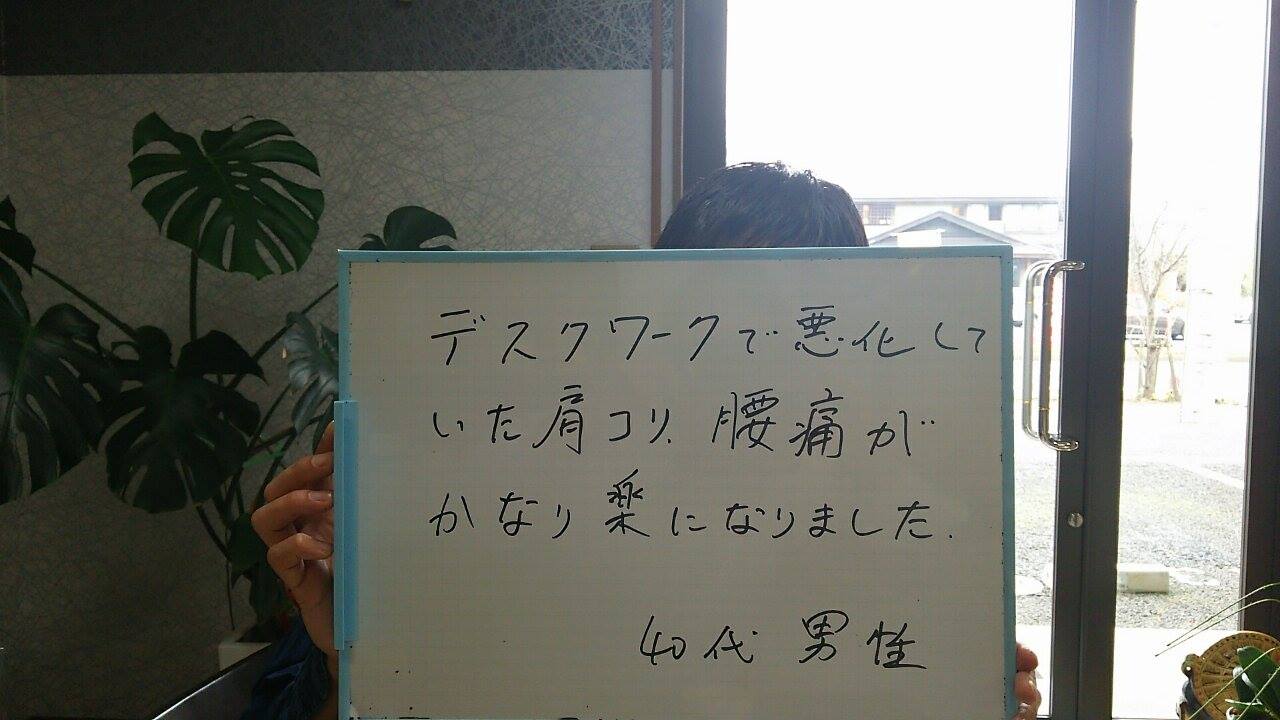 デスクワークで悪化して
いた肩コリ、腰痛が
かなり楽になりました.
40代 男性